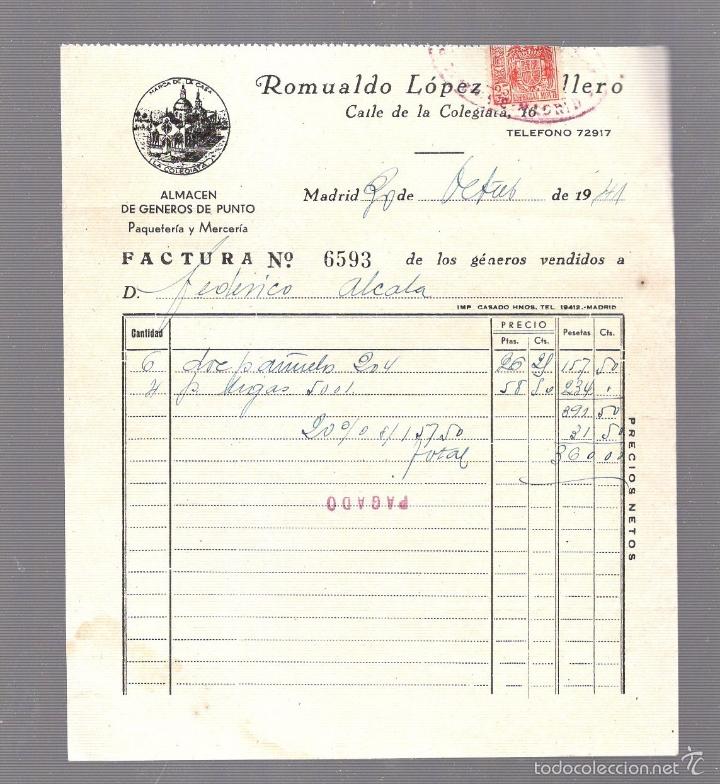 MARCA DE LA CASA
LA COLEGIATA
Romualdo López llero
Calle de la Colegiata, 16
MADRID
TELEFONO 72917
ALMACEN
DE GENEROS DE PUNTO
Paquetería y Mercería
Madrid 20 de de 1941
FACTURA Nº 6593 de los géneros vendidos a
D. Federico Alcala
IMP. CASADO HNOS. TEL. 19412.-MADRID
Cantidad PRECIO Pesetas Cts.
Ptas. Cts.
6 doc pañuelos 204 26 25 157 50
4 p 5001 58 50 234 .
391 50
20 % s/ 157 50 31 50
Total 360 00
PAGADO
PRECIOS NETOS
todocoleccion.net